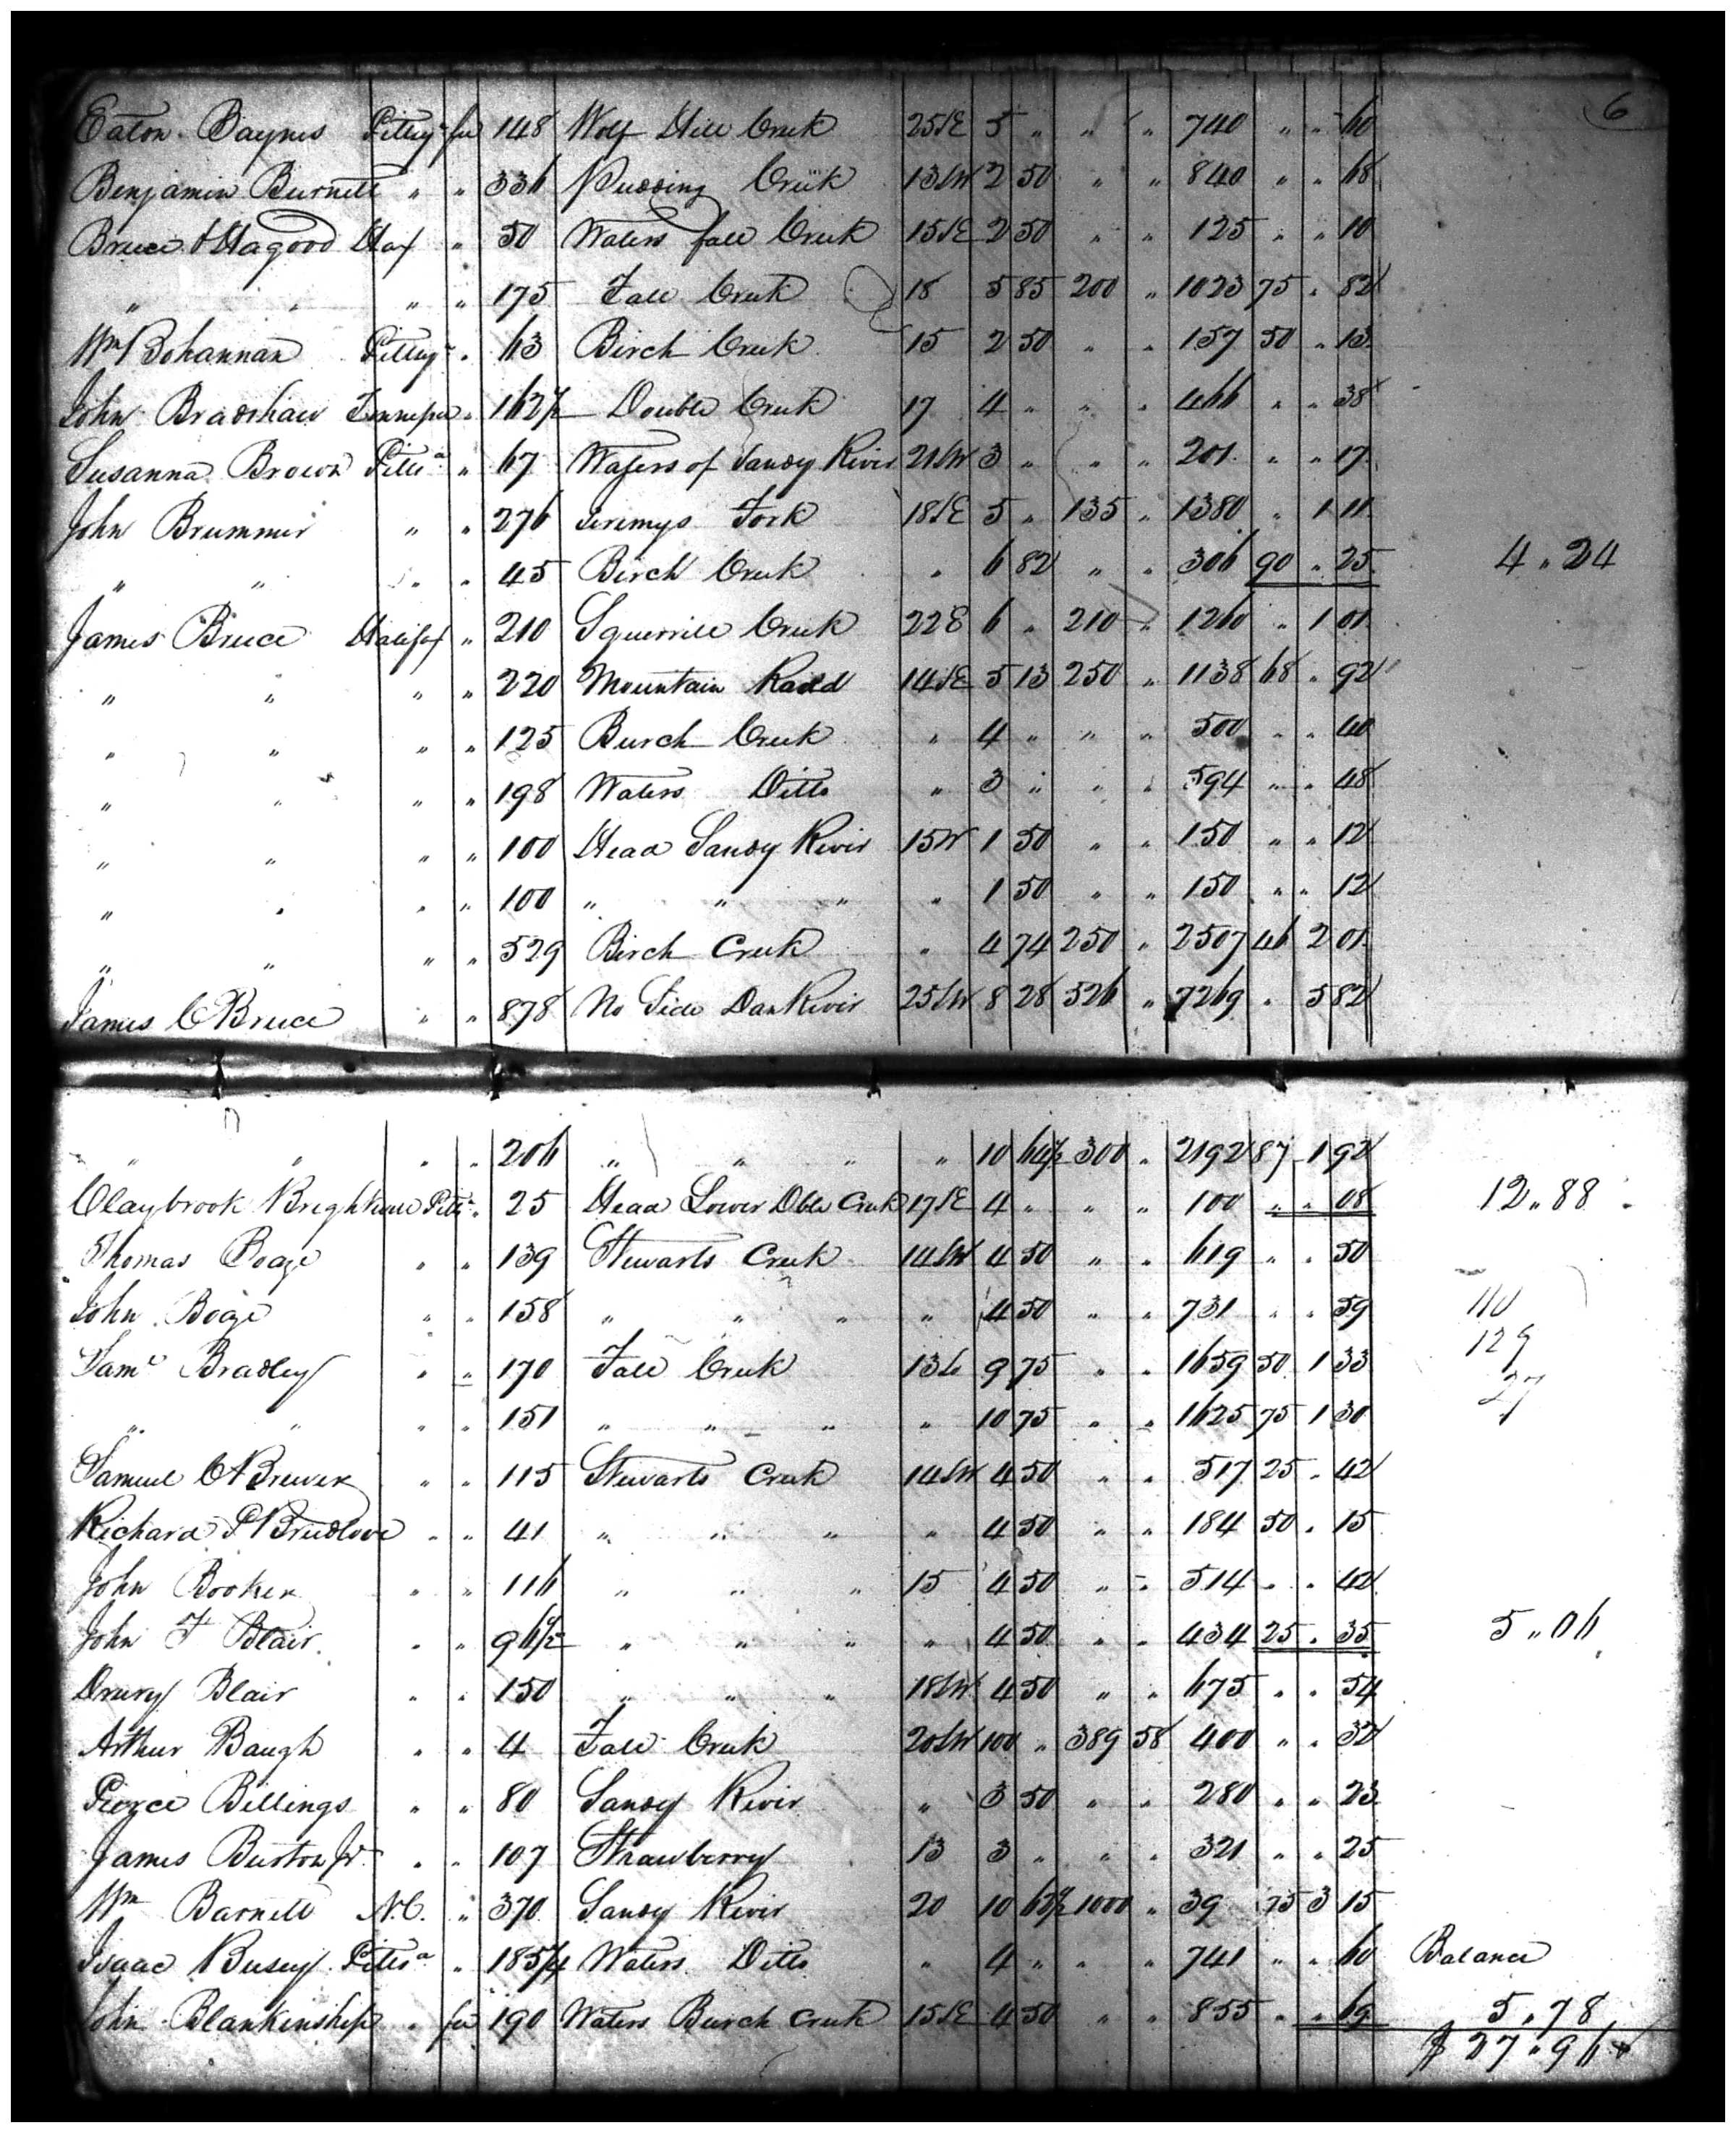 6
Eaton Baynes Pittsy fee 148 Wolf Hill Creek 25SE 5 " " " 740 " " 60
Benjamin Burnett " " 336 Pudding Creek 13SW 2 50 " " 840 " " 68
Bruce & Hagood Hax " 50 Waters fall Creek 15SE 2 50 " " 125 " " 10
" " " " 175 Fall Creek 18 5 85 200 " 1023 75 " 82
Wm Bohannan Pittsy " 63 Birch Creek 15 2 50 " " 157 50 " 13
John Bradshaw " 162 Double Creek 17 4 " " " 466 " " 38
Susanna Brown Pittsa " 67 Waters of Sandy River 21SW 3 " " " 201 " " 17
John Brummer " " 276 Jeremys Fork 18SE 5 " 135 " 1380 " 1 11
" " " " 45 Birch Creek " 6 82 " " 306 90 " 25 4 " 24
James Bruce Halifax " 210 Squerrill Creek 22E 6 " 210 " 1260 " 1 01
" " " " 220 Mountain Road 14SE 5 13 250 " 1138 68 " 92
" " " " 125 Burch Creek " 4 " " " 500 " " 40
" " " " 198 Waters Ditto " 3 " " " 594 " " 48
" " " " 100 Head Sandy River 15W 1 50 " " 150 " " 12
" " " " 100 " " " " 1 50 " " 150 " " 12
" " " " 529 Birch Creek " 4 74 250 " 2507 46 2 01
James C Bruce " " 878 No Side Dan River 25SW 8 28 326 " 7269 " 5 82
" " " " 206 " " " " 10 64½ 300 " 2192 87 1 92
Claybrook Brightwell Pitts " 25 Head Lower Dble Creek 17SE 4 " " " 100 " " 08 12 " 88
Thomas Boaze " " 139 Stewarts Creek 14SW 4 50 " " 619 " " 50
John Boaze " " 158 " " " " 4 50 " " 731 " " 59 110
Saml Bradley " " 170 Fall Creek 9 75 " " 1659 50 1 33 129
27
" " " " 151 " " " " 10 75 " " 1625 75 1 30
Samuel A Brewer " " 115 Stewarts Creek 14SW 4 50 " " 517 25 " 42
Richard P Breedlove " " 41 " " " " 4 50 " " 184 50 " 15
John Booker " " 116 " " " 15 4 50 " " 514 " " 42
John F Blair " " 96½ " " " " 4 50 " " 434 25 " 35 5 " 06
Drury Blair " " 150 " " " 18SW 4 50 " " 675 " " 54
Arthur Baugh " " 4 Fall Creek 20SW 100 " 389 58 400 " " 32
Pierce Billings " " 80 Sandy River " 3 50 " " 280 " " 23
James Burton Jr " " 107 Strawberry 13 3 " " " 321 " " 25
Wm Barnett N.C. " 370 Sandy River 20 10 63½ 1000 " 39 75 3 15
Isaac Busey Pittsa " 185¼ Waters Ditto " 4 " " " 741 " " 60 Balance
John Blankinship " fee 190 Waters Burch Creek 15SE 4 50 " " 855 " " 69 5 " 78
$ 27 " 96